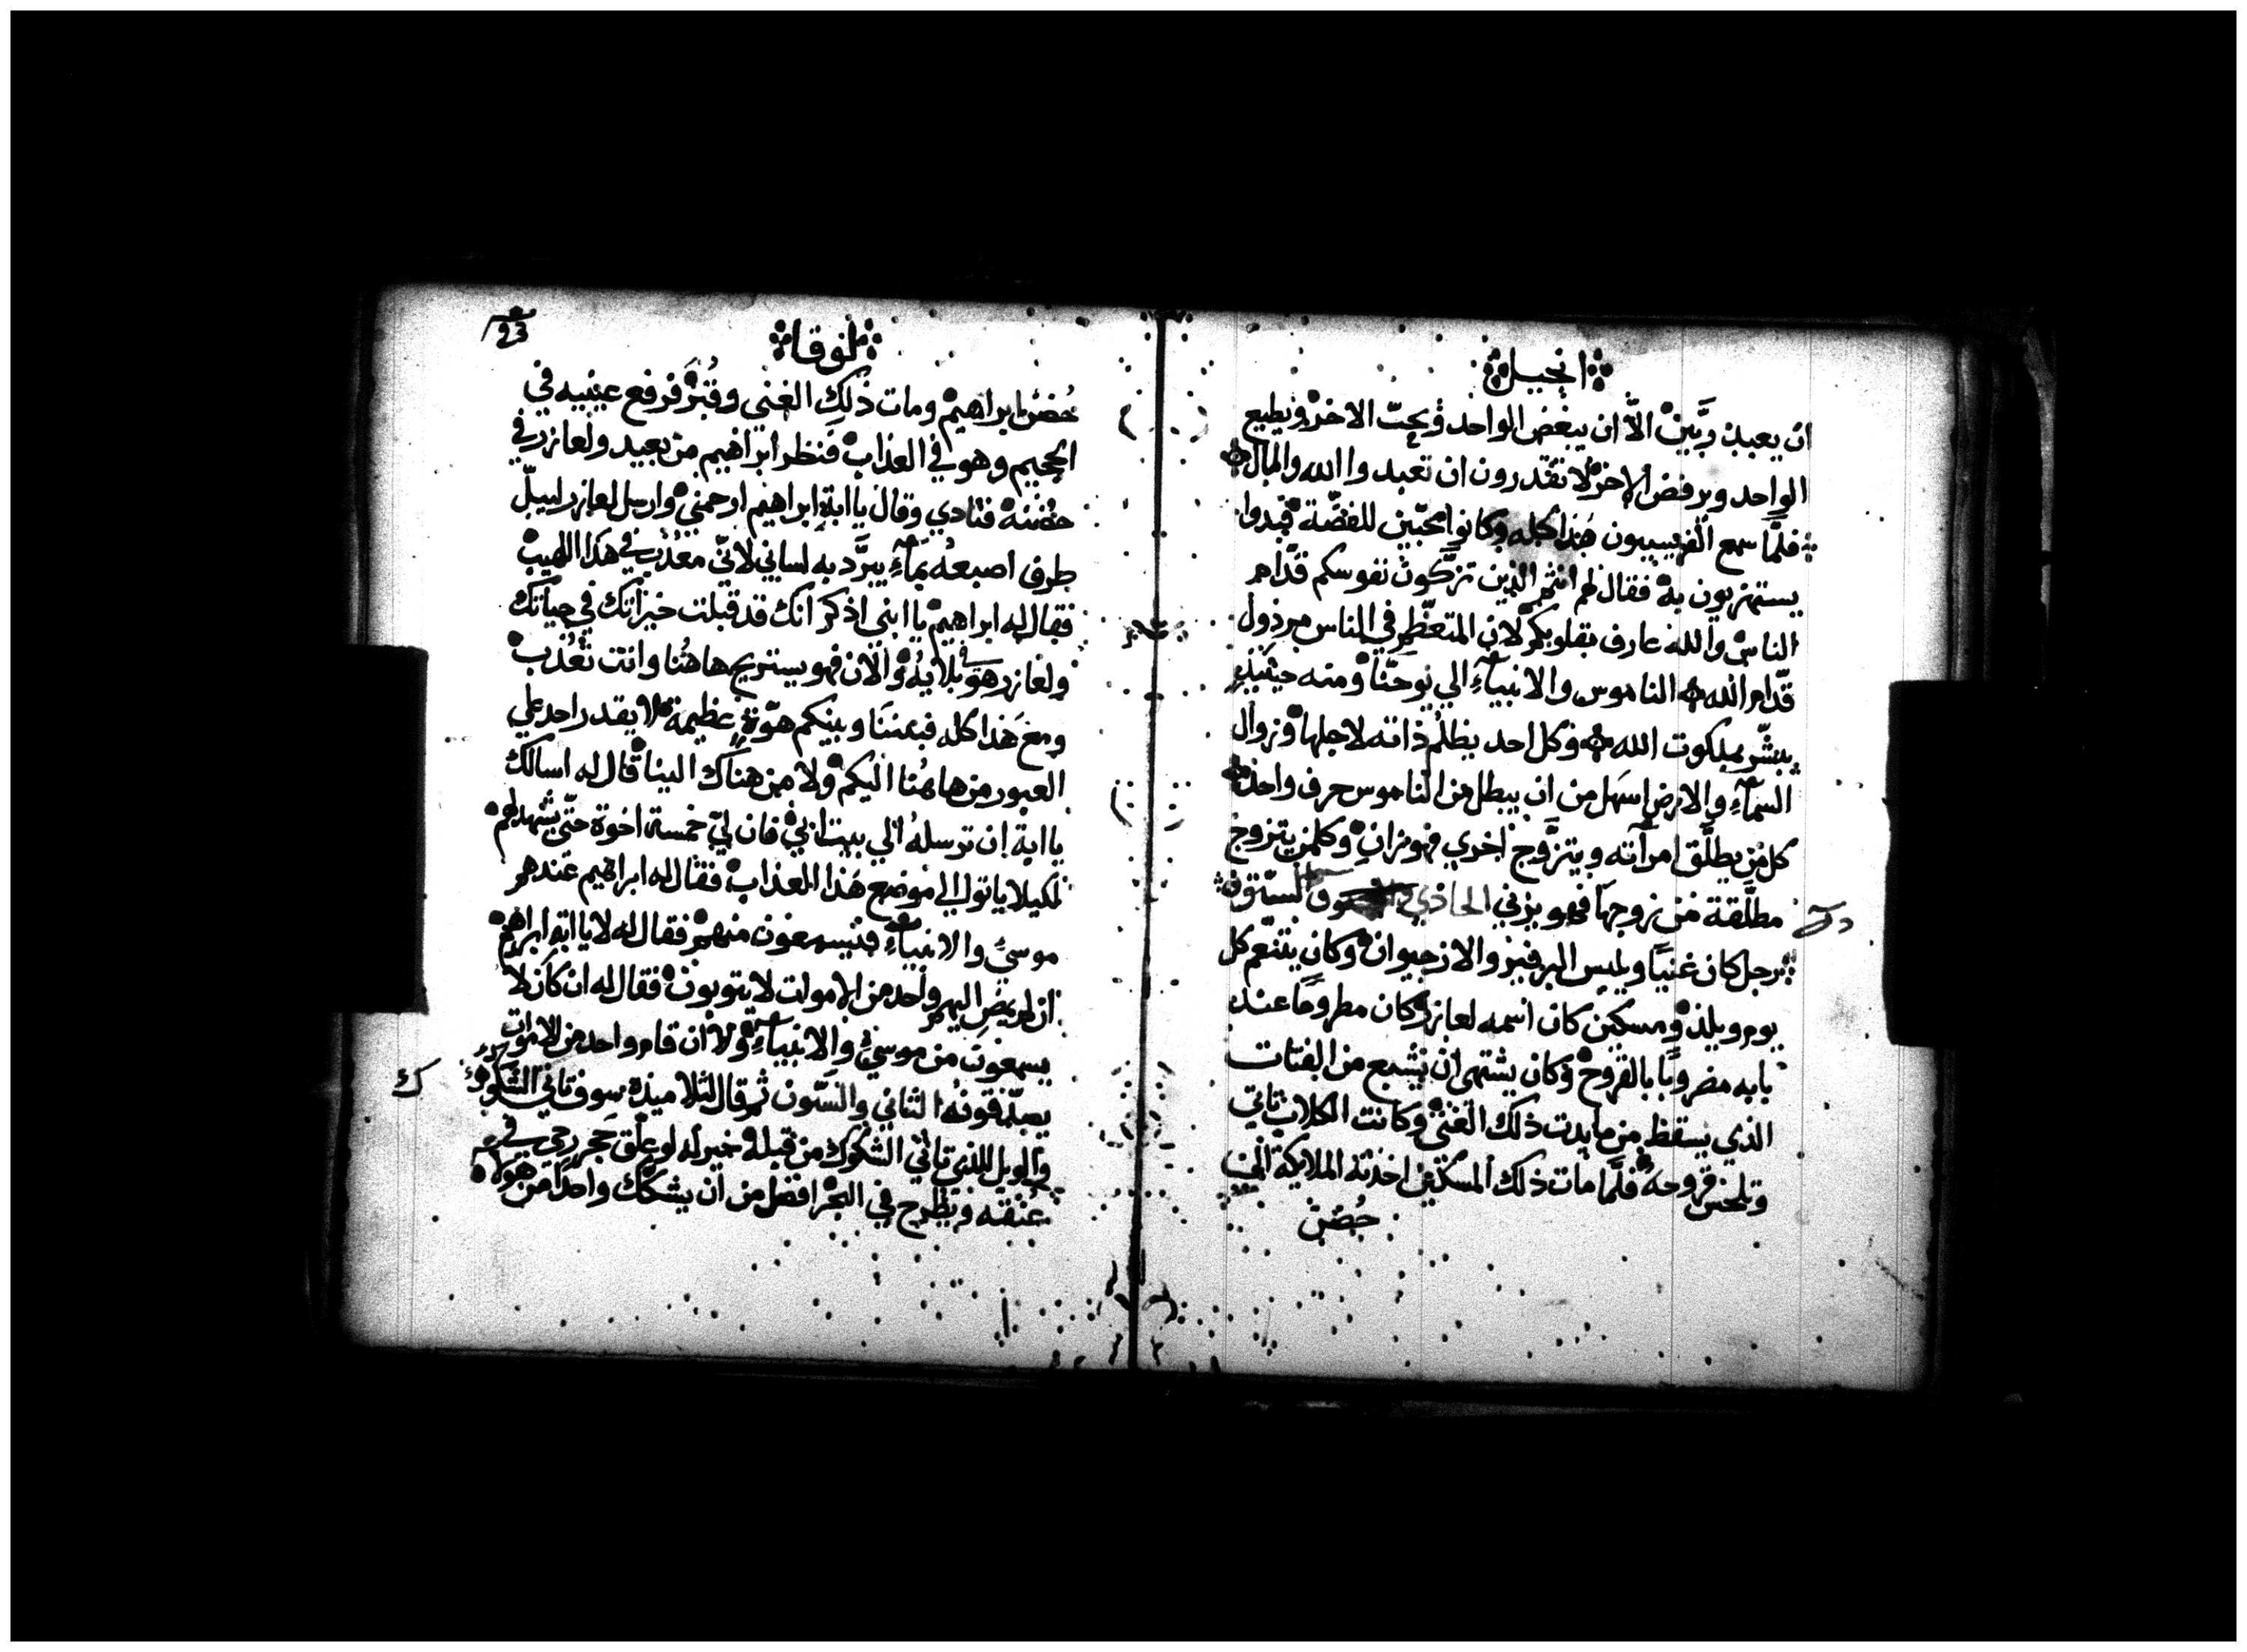 انجيل
ان يعبد ربَّين الاّ ان يبغض الواحد ويحبّ الاخر ويطيع
الواحد ويرفض الاخر لا تقدرون ان تعبدوا الله والمال
فلمَّا سمع الفريسيون هذا كله وكانوا محبّين للفضّة فبدوا
يستهزيون به فقال لهم انتم الذين تزكّون نفوسكم قدَّام
الناس والله عارف بقلوبكم لان المتعظّم في الناس مرذول
قدّام الله الناموس والانبيآءِ الي يوحنّا ومنه حينيذٍ
يبشّر بملكوت الله وكل احد يظلم ذاته لاجلها وزوال
السمآءِ والارض اسهل من ان يبطل من الناموس حرف واحد
كل من يطلّق امرآته ويتزوَّج اخري فهو زانٍ وكلمن يتزوج
مطلَّقة من زوجها فهو يزني الحادي والستّون
رجل كان غنيًا ويلبس البرفير والارجوان وكان يتنعّم كل
يوم ويلذ ومسكين كان اسمه لعازر كان مطروحًا عند
بابه مضروبًا بالقروح وكان يشتهي ان يشبع من الفتات
الذي يسقط من مايدت ذلك الغني وكانت الكلاب تاتي
وتلحس قروحه فلمَّا مات ذلك المسكين اخذته الملايكة الي
حُضن
لوقا
93
حُضن ابراهيم ومات ذلك الغني وقُبر فرفع عينيه في
الجحيم وهو في العذاب فنظر ابراهيم من بعيد ولعازر في
حضنه فنادي وقال يا ابة ابراهيم ارحمني وارسل لعازر ليبلّ
طرف اصبعه بمآءِ يبرَّد به لساني لانّي معذب في هذا اللهيب
فقال له ابراهيم يا ابني اذكر انك قد قبلت خيراتك في حياتك
ولعازر هو في بلايه والان فهو يستريح هاهُنا وانت تُعذب
ومع هذا كله فبيننا وبينكم هوّة عظيمة لا يقدر احد علي
العبور من هاهُنا اليكم ولا من هناك الينا قال له اسالك
يا ابة ان ترسله الي بيت ابي فان لي خمسة اخوة حتّي يشهد لهم
لكيلا ياتوا الي موضع هذا العذاب فقال له ابراهيم عندهم
موسي والانبيآءِ فيسمعون منهم فقال له لا يا ابة ابراهيم
ان لم يمضِ اليهم واحد من الاموات لا يتوبون فقال له ان كان لا
يسمعون من موسي والانبيآءِ ولا ان قام واحد من الاموات
يصدّقونه الثاني والستّون ثم قال لتلاميذه سوف تاتي الشكوك
والويل للذي تاتي الشكوك من قبله خير له لو علق حجر رحي في
عُنقه ويطرح في البحر افضل من ان يشكك واحدًا من هولاء